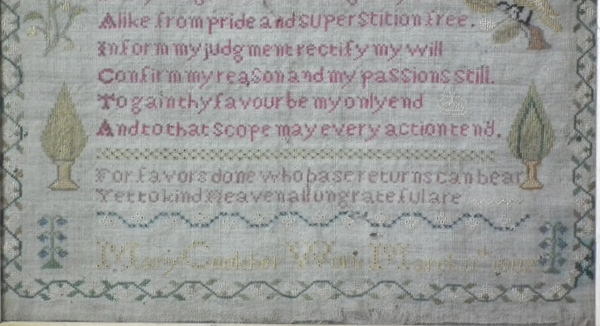 Alike from pride and superstition free.
Inform my judgment rectify my will
Confirm my reason and my passions still.
To gain thy favour be my only end
And to that scope may every action tend.
For favors done who base returns can bear
Yet to kind Heaven all ungrateful are
Mary March